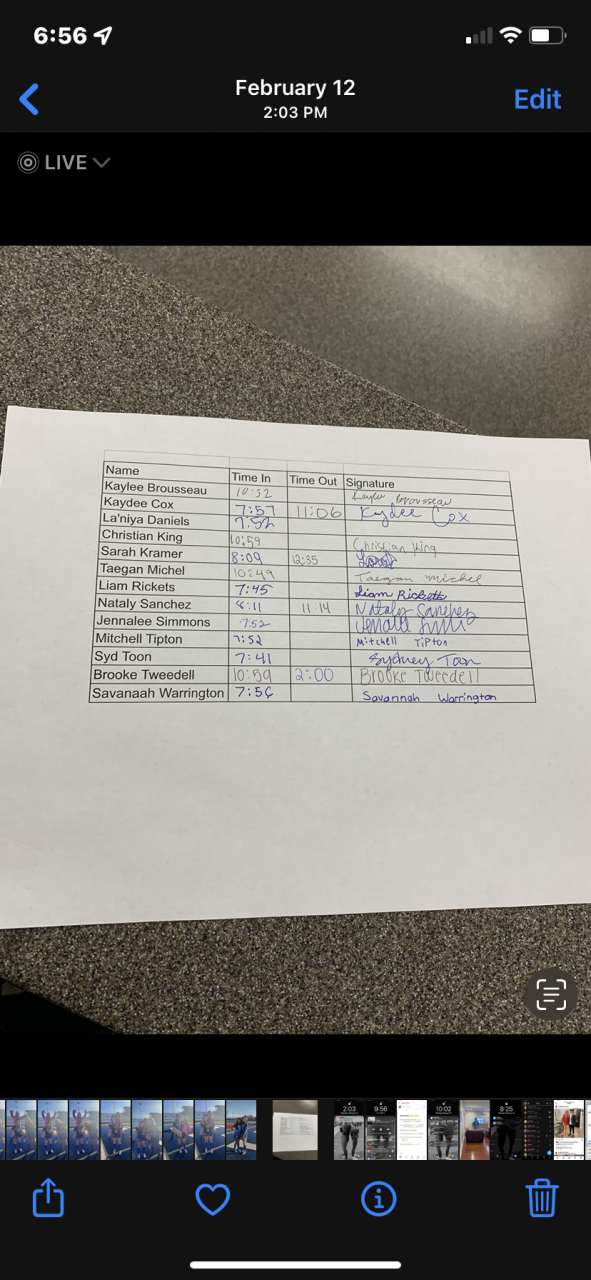 6:56
February 12
2:03 PM
Edit
LIVE
Name Time In Time Out Signature
Kaylee Brousseau 10:52 Kaylee Brousseau
Kaydee Cox 7:57 11:06 Kydee Cox
La'niya Daniels 7:52
Christian King 10:59 Christian King
Sarah Kramer 8:09 12:35
Taegan Michel 10:49 Taegan Michel
Liam Rickets 7:45 Liam Ricketts
Nataly Sanchez 8:11 11:14 Nataly Sanchez
Jennalee Simmons 7:52
Mitchell Tipton 7:52 Mitchell Tipton
Syd Toon 7:41 Sydney Toon
Brooke Tweedell 10:59 2:00 Brooke Tweedell
Savanaah Warrington 7:56 Savannah Warrington
2:03 9:56 10:02 8:25